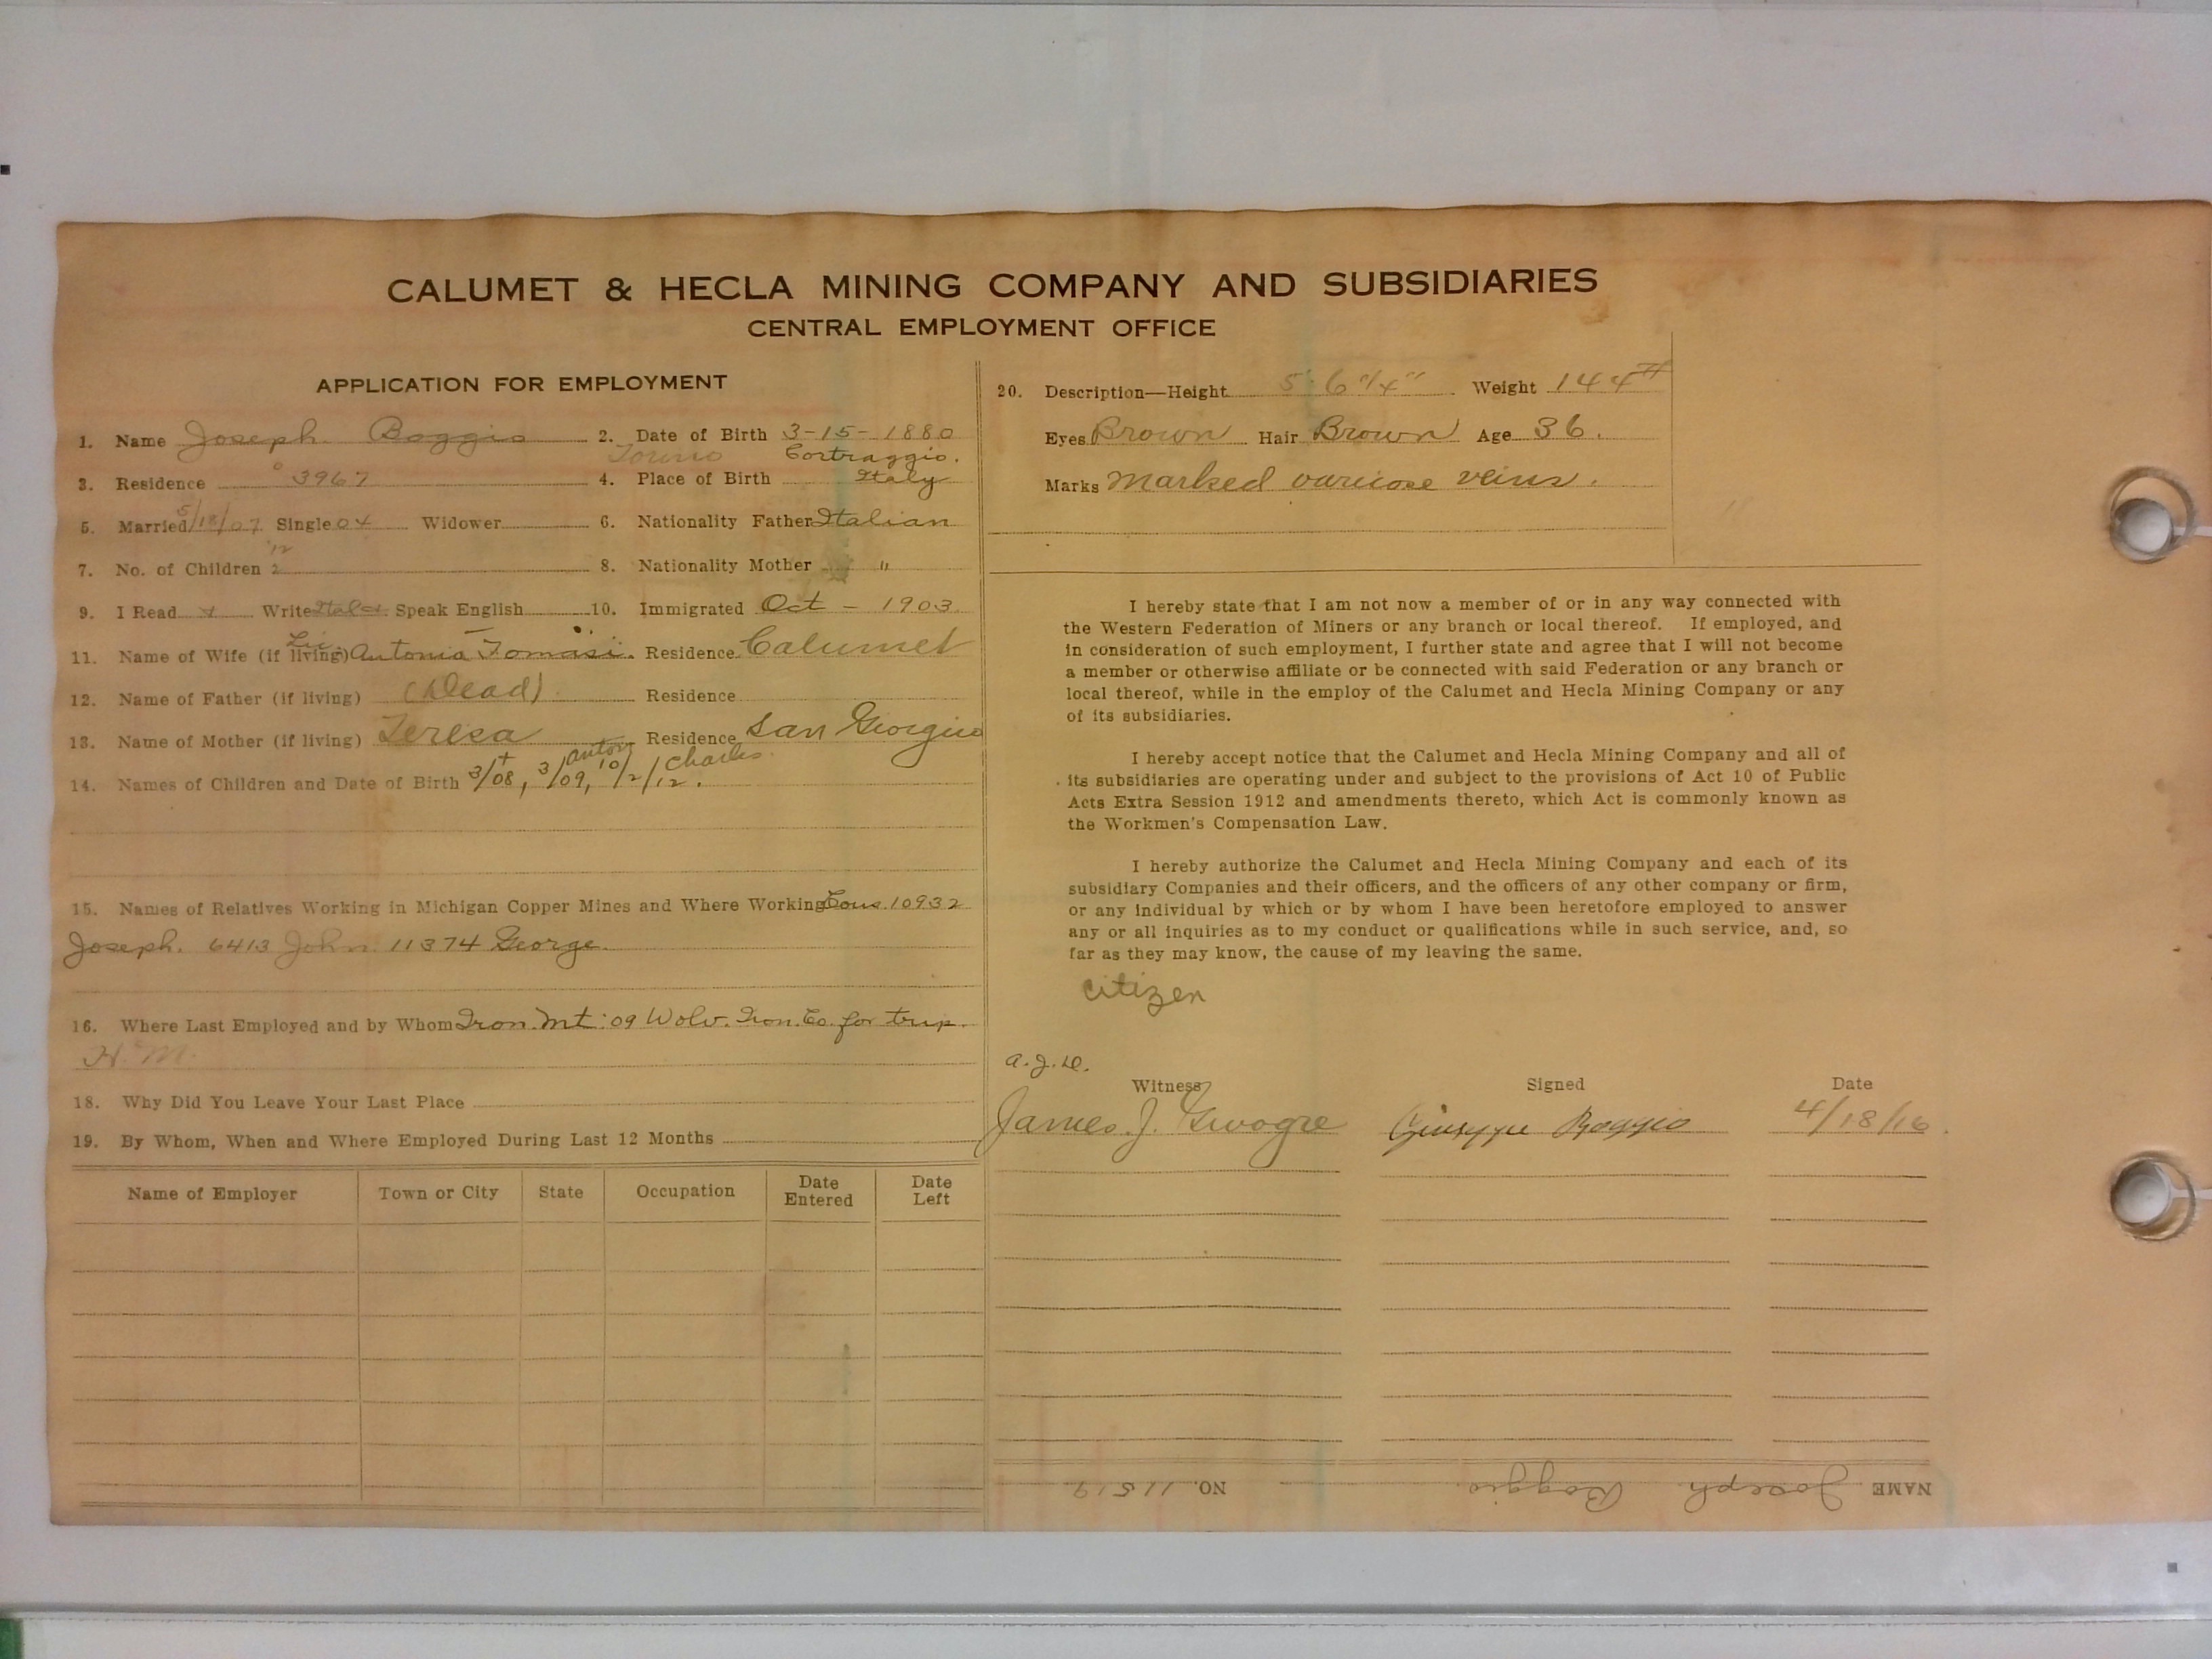 CALUMET & HECLA MINING COMPANY AND SUBSIDIARIES
CENTRAL EMPLOYMENT OFFICE
APPLICATION FOR EMPLOYMENT
1. Name Joseph Boggio 2. Date of Birth 3-15-1880
Torino Cortraggio.
3. Residence 3967 4. Place of Birth Italy
5. Married 5/18/07 Single 04 Widower 6. Nationality Father Italian
'12
7. No. of Children 2 8. Nationality Mother "
9. I Read Write Ital Speak English 10. Immigrated Oct - 1903
11. Name of Wife (if living) Antonia Tomasi. Residence Calumet
12. Name of Father (if living) (Dead) Residence
13. Name of Mother (if living) Teresa Residence San Giorgio
anton Charles
14. Names of Children and Date of Birth 3/08, 3/09, 10/2/12.
15. Names of Relatives Working in Michigan Copper Mines and Where Working Cous. 10932
Joseph. 6413 John 11374 George.
16. Where Last Employed and by Whom Iron Mt. '09 Wolv. Iron. Co. for
H. M.
18. Why Did You Leave Your Last Place
19. By Whom, When and Where Employed During Last 12 Months
Name of Employer Town or City State Occupation Date Entered Date Left
20. Description—Height 5' 6 Weight 144#
Eyes Brown Hair Brown Age 36.
Marks Marked varicose veins.
I hereby state that I am not now a member of or in any way connected with
the Western Federation of Miners or any branch or local thereof. If employed, and
in consideration of such employment, I further state and agree that I will not become
a member or otherwise affiliate or be connected with said Federation or any branch or
local thereof, while in the employ of the Calumet and Hecla Mining Company or any
of its subsidiaries.
I hereby accept notice that the Calumet and Hecla Mining Company and all of
its subsidiaries are operating under and subject to the provisions of Act 10 of Public
Acts Extra Session 1912 and amendments thereto, which Act is commonly known as
the Workmen's Compensation Law.
I hereby authorize the Calumet and Hecla Mining Company and each of its
subsidiary Companies and their officers, and the officers of any other company or firm,
or any individual by which or by whom I have been heretofore employed to answer
any or all inquiries as to my conduct or qualifications while in such service, and, so
far as they may know, the cause of my leaving the same.
citizen
a.J.D.
Witness Signed Date
James. J. Giuseppe Boggio 4/18/16.
NAME Joseph Boggio. NO. 11519